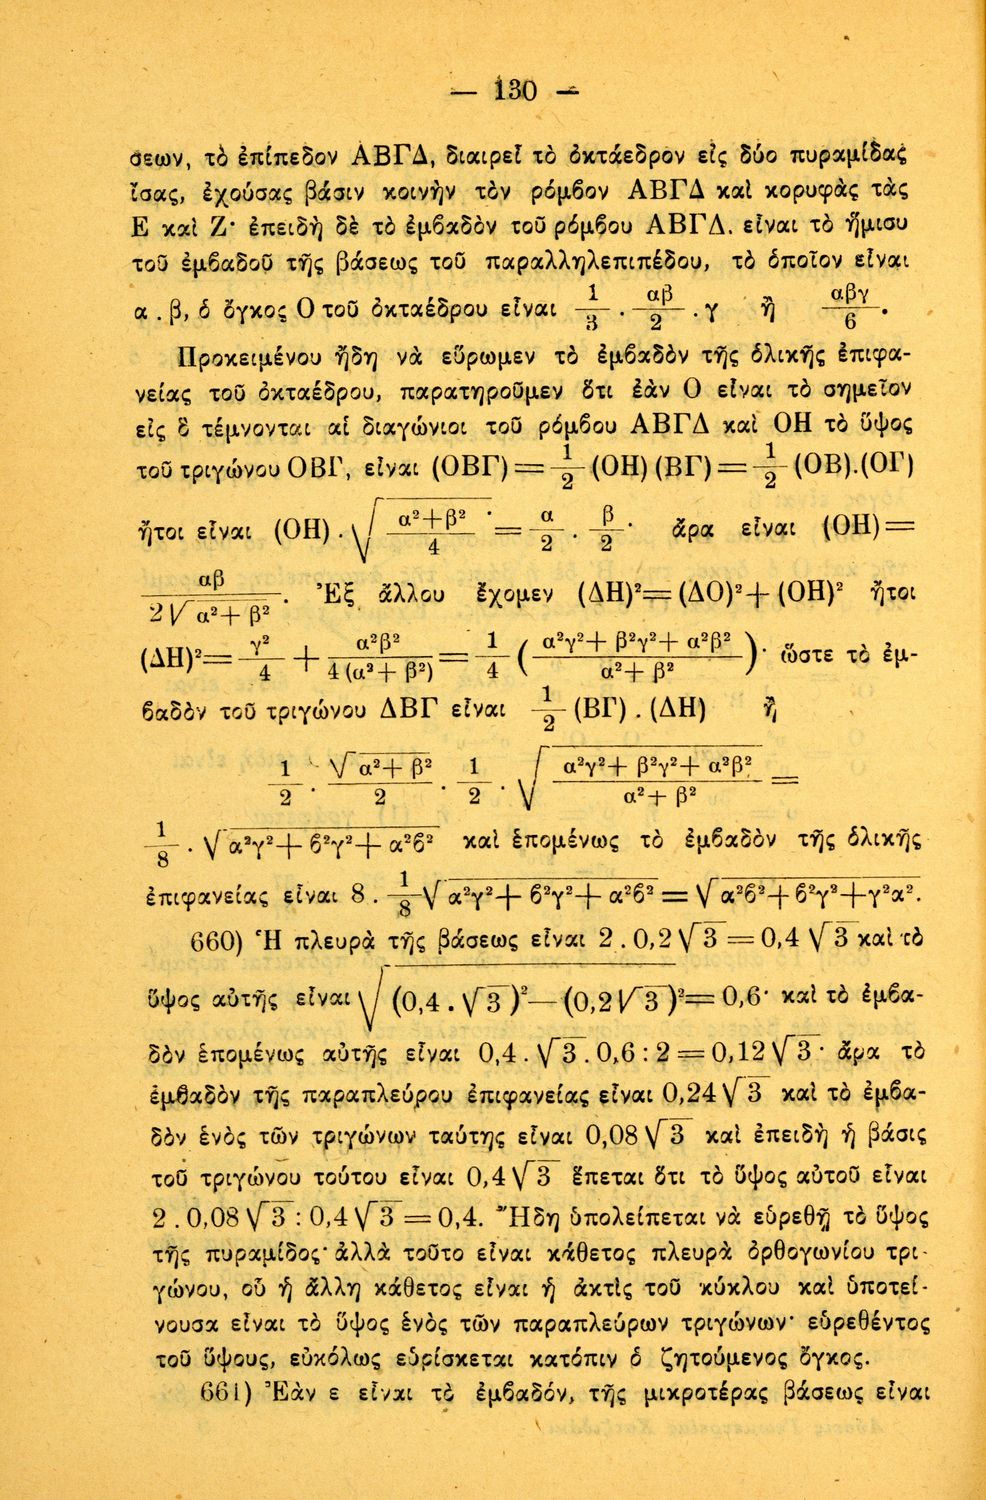 — 130 —
σεων, τὸ ἐπίπεδον ΑΒΓΔ, διαιρεῖ τὸ ὀκτάεδρον εἰς δύο πυραμίδας
ἴσας, ἐχούσας βάσιν κοινὴν τὸν ρόμβον ΑΒΓΔ καὶ κορυφὰς τὰς
Ε καὶ Ζ· ἐπειδὴ δὲ τὸ ἐμβαδὸν τοῦ ρόμβου ΑΒΓΔ. εἶναι τὸ ἥμισυ
τοῦ ἐμβαδοῦ τῆς βάσεως τοῦ παραλληλεπιπέδου, τὸ ὁποῖον εἶναι
α . β, ὁ ὄγκος Ο τοῦ ὀκταέδρου εἶναι 1/3 . αβ/2 . γ ἢ αβγ/6 .
Προκειμένου ἤδη νὰ εὕρωμεν τὸ ἐμβαδὸν τῆς ὁλικῆς ἐπιφα-
νείας τοῦ ὀκταέδρου, παρατηροῦμεν ὅτι ἐὰν Ο εἶναι τὸ σημεῖον
εἰς ὃ τέμνονται αἱ διαγώνιοι τοῦ ρόμβου ΑΒΓΔ καὶ ΟΗ τὸ ὕψος
τοῦ τριγώνου ΟΒΓ, εἶναι (ΟΒΓ) = 1/2 (ΟΗ) (ΒΓ) = 1/2 (ΟΒ).(ΟΓ)
ἤτοι εἶναι (ΟΗ) . √(α²+β²/4) = α/2 . β/2 · ἄρα εἶναι (ΟΗ) =
αβ/2√(α²+β²) . Ἐξ ἄλλου ἔχομεν (ΔΗ)² = (ΔΟ)² + (ΟΗ)² ἤτοι
(ΔΗ)² = γ²/4 + α²β²/4(α²+β²) = 1/4 (α²γ²+β²γ²+α²β²/α²+β²) · ὥστε τὸ ἐμ-
βαδὸν τοῦ τριγώνου ΔΒΓ εἶναι 1/2 (ΒΓ) . (ΔΗ) ἢ
1/2 . √(α²+β²)/2 . 1/2 . √(α²γ²+β²γ²+α²β²/α²+β²) =
1/8 . √(α²γ²+β²γ²+α²β²) καὶ ἑπομένως τὸ ἐμβαδὸν τῆς ὁλικῆς
ἐπιφανείας εἶναι 8 . 1/8 √(α²γ²+β²γ²+α²β²) = √(α²β²+β²γ²+γ²α²).
660) Ἡ πλευρὰ τῆς βάσεως εἶναι 2 . 0,2 √3 = 0,4 √3 καὶ τὸ
ὕψος αὐτῆς εἶναι √((0,4 . √3)² — (0,2 √3)²) = 0,6· καὶ τὸ ἐμβα-
δὸν ἑπομένως αὐτῆς εἶναι 0,4 . √3 . 0,6 : 2 = 0,12 √3 · ἄρα τὸ
ἐμβαδὸν τῆς παραπλεύρου ἐπιφανείας εἶναι 0,24 √3 καὶ τὸ ἐμβα-
δὸν ἑνὸς τῶν τριγώνων ταύτης εἶναι 0,08 √3 καὶ ἐπειδὴ ἡ βάσις
τοῦ τριγώνου τούτου εἶναι 0,4 √3 ἕπεται ὅτι τὸ ὕψος αὐτοῦ εἶναι
2 . 0,08 √3 : 0,4 √3 = 0,4. Ἤδη ὑπολείπεται νὰ εὑρεθῇ τὸ ὕψος
τῆς πυραμίδος· ἀλλὰ τοῦτο εἶναι κάθετος πλευρὰ ὀρθογωνίου τρι-
γώνου, οὗ ἡ ἄλλη κάθετος εἶναι ἡ ἀκτὶς τοῦ κύκλου καὶ ὑποτεί-
νουσα εἶναι τὸ ὕψος ἑνὸς τῶν παραπλεύρων τριγώνων· εὑρεθέντος
τοῦ ὕψους, εὐκόλως εὑρίσκεται κατόπιν ὁ ζητούμενος ὄγκος.
661) Ἐὰν ε εἶναι τὸ ἐμβαδόν, τῆς μικροτέρας βάσεως εἶναι